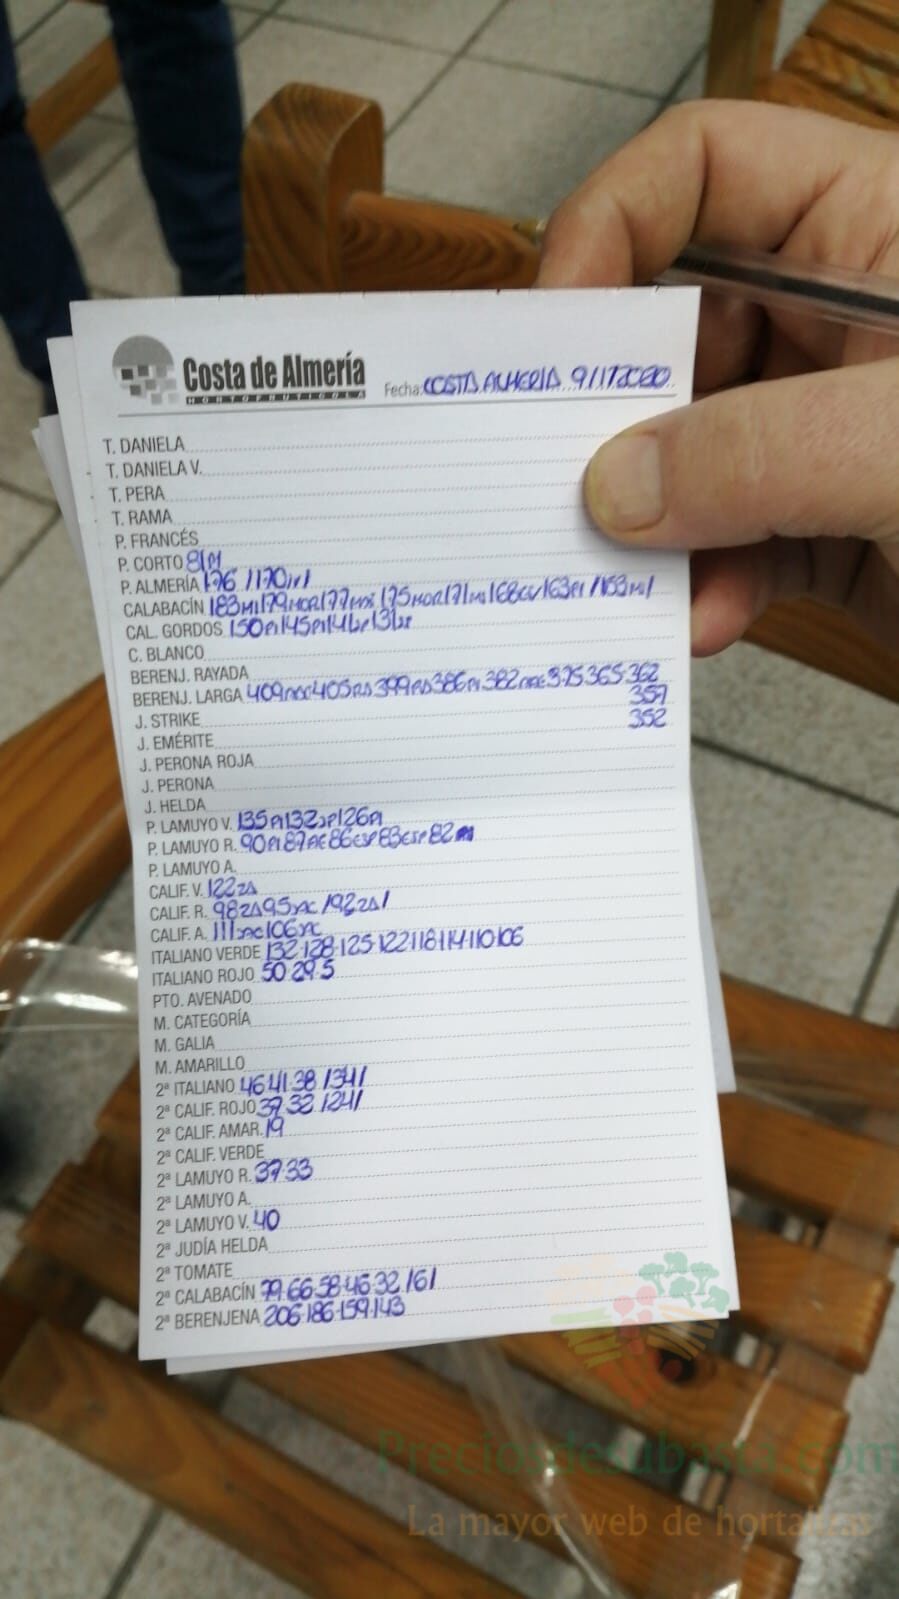 Costa de Almería
HORTOFRUTICOLA
Fecha: COSTA ALMERIA 9/1/2020
T. DANIELA
T. DANIELA V.
T. PERA
T. RAMA
P. FRANCÉS
P. CORTO 81
P. ALMERÍA 176 /170
CALABACÍN 183 179 177 175 171 168 163 /153
CAL. GORDOS 150 145 14 13
C. BLANCO
BERENJ. RAYADA
BERENJ. LARGA 409 405 399 386 382 375·365·362
357
J. STRIKE
352
J. EMÉRITE
J. PERONA ROJA
J. PERONA
J. HELDA
P. LAMUYO V. 135 132 126
P. LAMUYO R. 90 87 86 83 82
P. LAMUYO A.
CALIF. V. 122
CALIF. R. 98 95 /92
CALIF. A. 111 106
ITALIANO VERDE 132·128·125·122·118·114·110·106
ITALIANO ROJO 50·29·5
PTO. AVENADO
M. CATEGORÍA
M. GALIA
M. AMARILLO
2ª ITALIANO 46·41·38 /34/
2ª CALIF. ROJO 37·32 /24/
2ª CALIF. AMAR. 19
2ª CALIF. VERDE
2ª LAMUYO R. 37·33
2ª LAMUYO A.
2ª LAMUYO V. 40
2ª JUDÍA HELDA
2ª TOMATE
2ª CALABACÍN 79·66·58·46·32 /6/
2ª BERENJENA 206·186·159·143
Preciosdesubasta.com
La mayor web de hortalizas